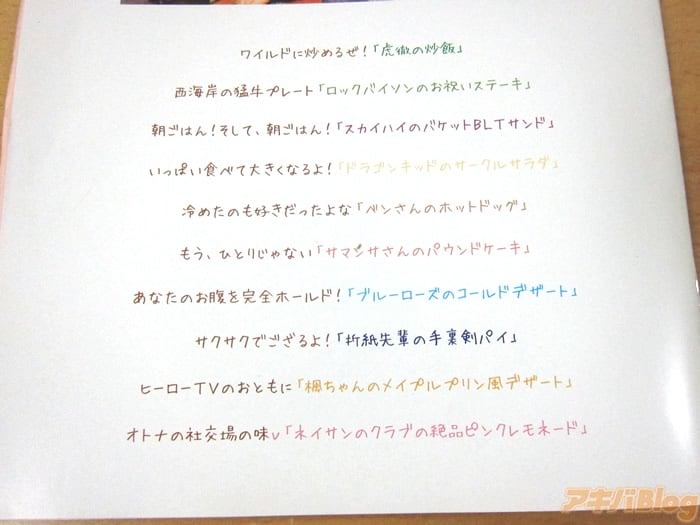 ワイルドに炒めるぜ!「虎徹の炒飯」
西海岸の猛牛プレート「ロックバイソンのお祝いステーキ」
朝ごはん!そして、朝ごはん!「スカイハイのバケットBLTサンド」
いっぱい食べて大きくなるよ!「ドラゴンキッドのサークルサラダ」
冷めたのも好きだったよな「ベンさんのホットドッグ」
もう、ひとりじゃない「サマンサさんのパウンドケーキ」
あなたのお腹を完全ホールド!「ブルーローズのコールドデザート」
サクサクでござるよ!「折紙先輩の手裏剣パイ」
ヒーローTVのおともに「楓ちゃんのメイプルプリン風デザート」
オトナの社交場の味v「ネイサンのクラブの絶品ピンクレモネード」
アキバBlog